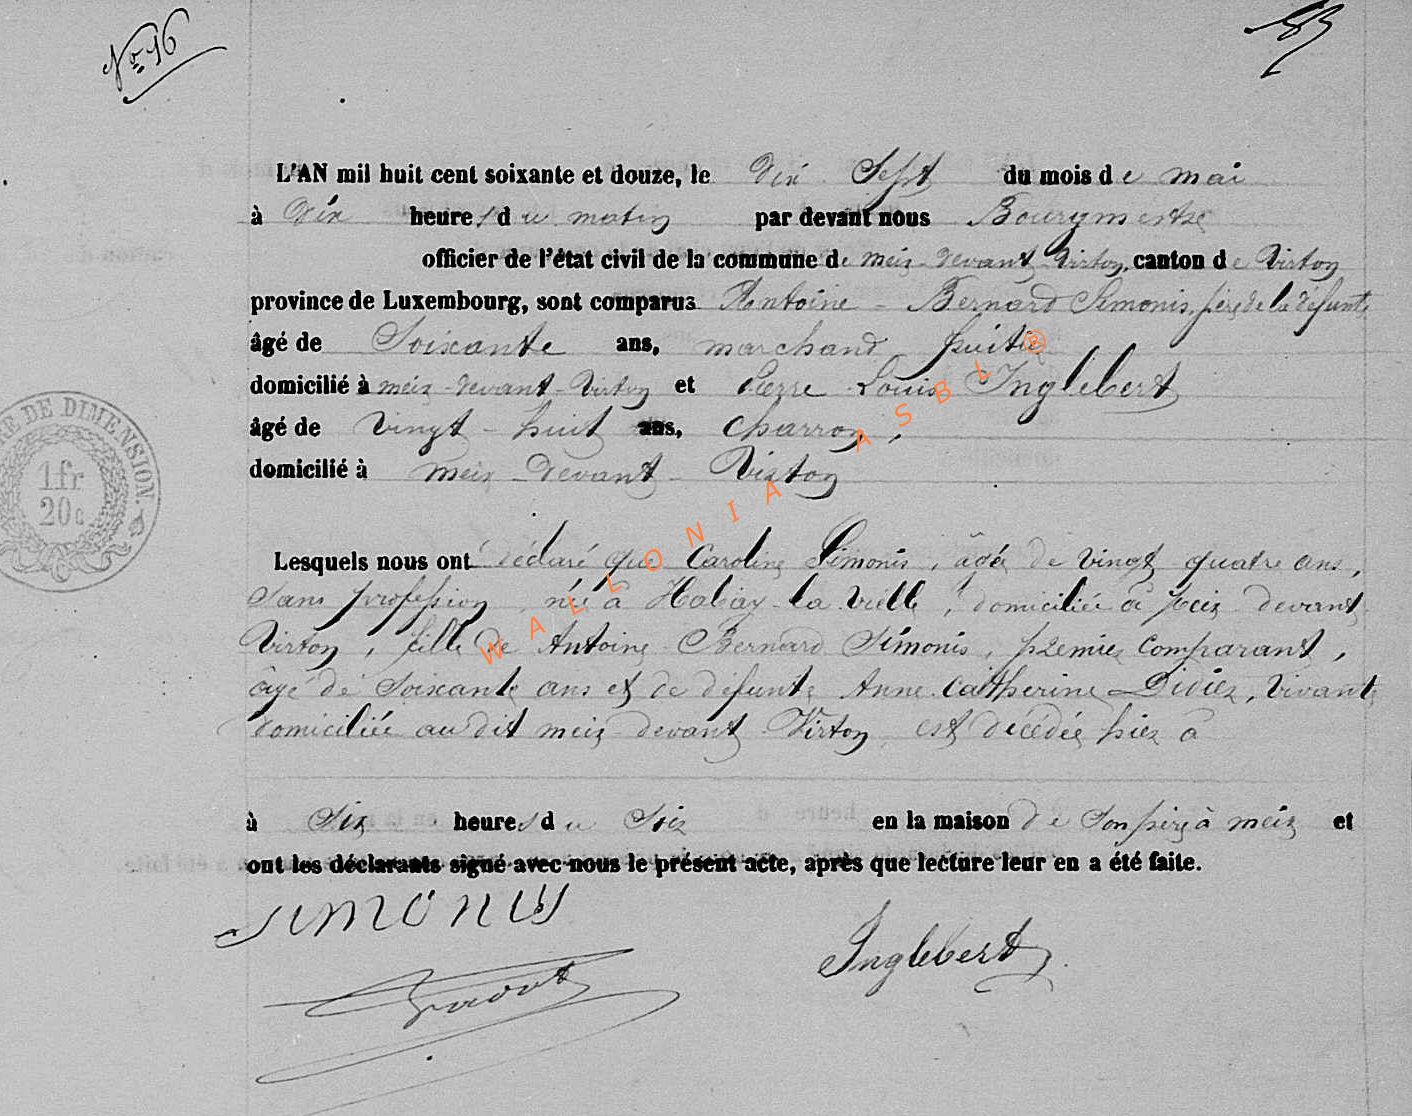 Nº 16
83
L'AN mil huit cent soixante et douze, le dix Sept du mois de mai
à Dix heures du matin par devant nous Bourgmestre
officier de l'état civil de la commune de meix-devant-Virton, canton de Virton
province de Luxembourg, sont comparus Antoine - Bernard Simonis, père de la défunte
âgé de Soixante ans, marchand
domicilié à meix-devant-Virton et Pierre Louis Inglebert
âgé de vingt-huit ans, charron,
domicilié à meix-devant-Virton
Lesquels nous ont déclaré que Caroline Simonis, âgée de vingt quatre ans,
Sans profession, née à Habay-la Vielle, domiciliée à meix devant
Virton, fille de Antoine Bernard Simonis, premier Comparant,
âgé de Soixante ans et de défunte Anne Catherine Didier, vivante
domiciliée au dit meix devant Virton, est décédée hier à
à Six heures du Soir en la maison de Son père à meix et
ont les déclarants signé avec nous le présent acte, après que lecture leur en a été faite.
Simonis
Inglebert
RE DE DIMENSION.
1 fr
20 c
WALLONIA ASBL ®